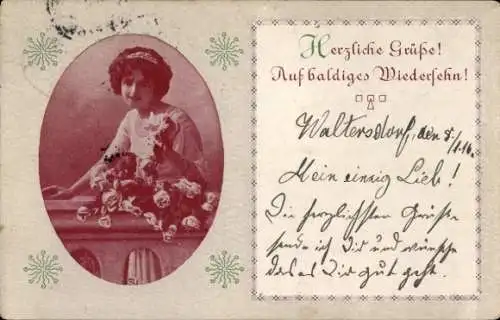 Herzliche Grüße!
Auf baldiges Wiedersehn!
Waltersdorf, den 8./1.16.
Mein einzig Lieb!
Die herzlichsten Grüße
sende ich Dir und wünsche
das es Dir gut geht.